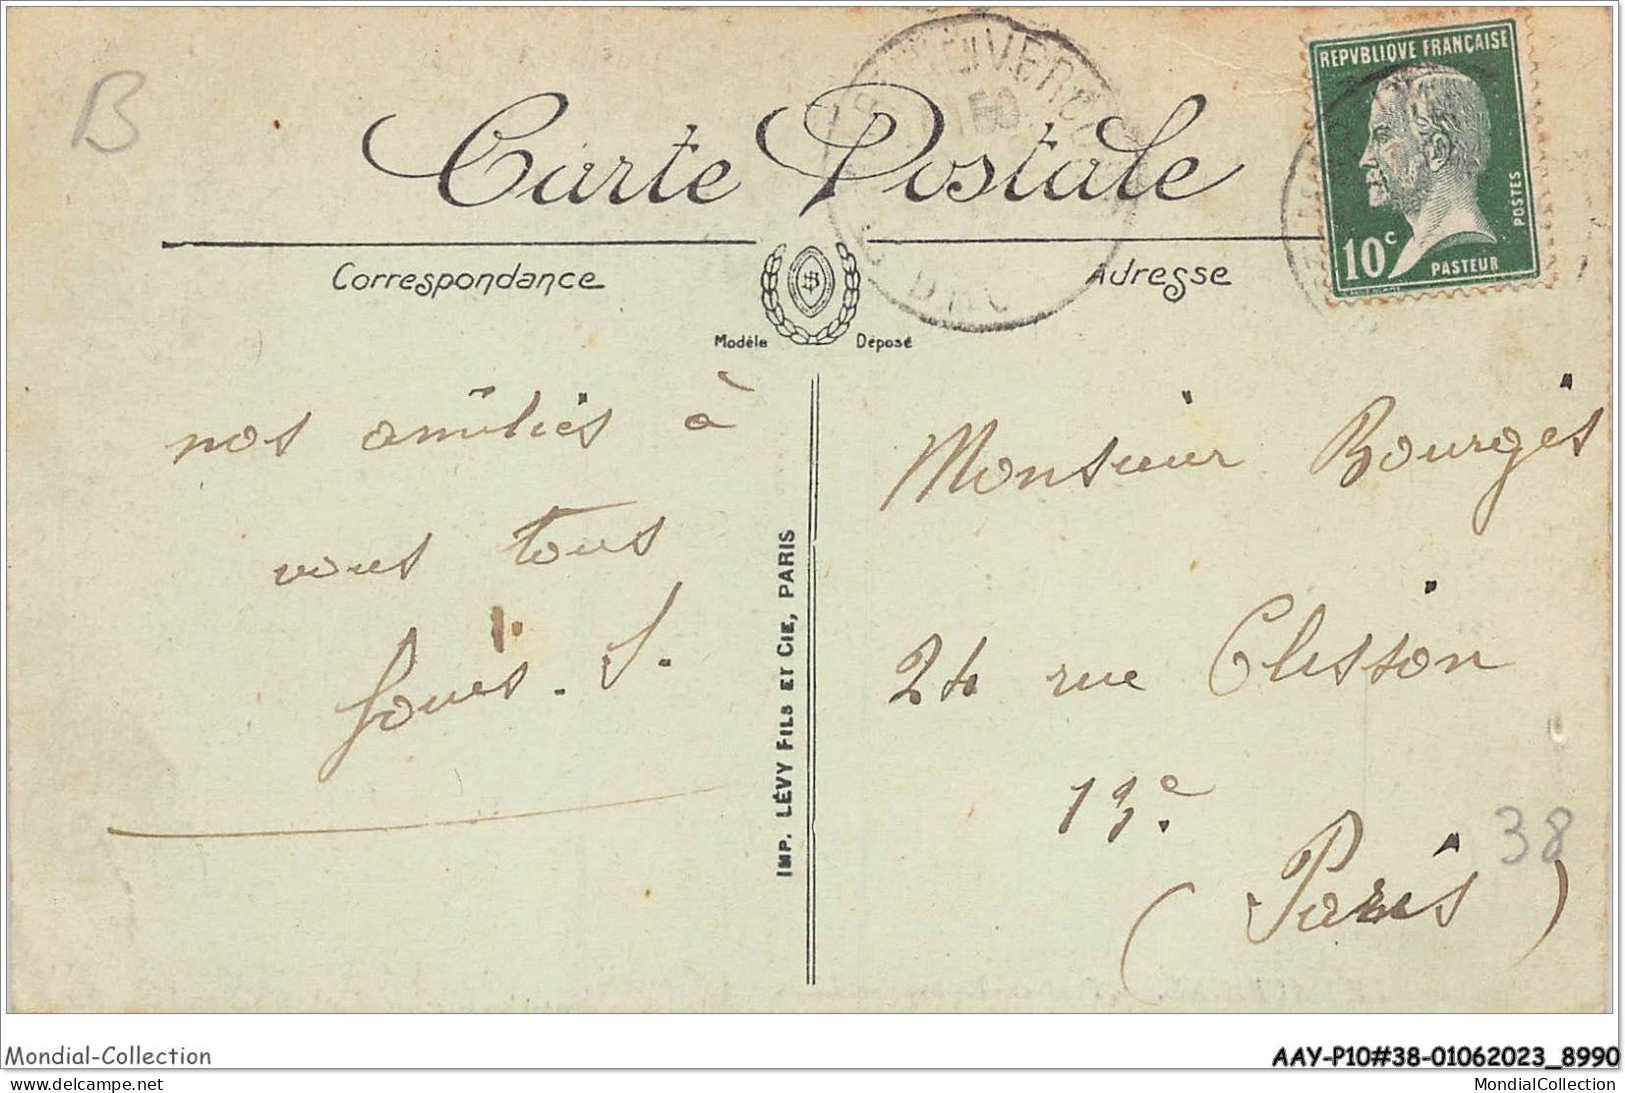 B
REPVBLIQVE FRANÇAISE
POSTES
10c
PASTEUR
Carte Postale
Correspondance
Adresse
Modèle Déposé
nos amitiés à
vous tous
Louis. S.
IMP. LÉVY FILS ET CIE, PARIS
Monsieur Bourgès
24 rue Clisson
13e.
(Paris)
38
Mondial-Collection
AAY-P10#38-01062023_8990
(c) www.delcampe.net
MondialCollection